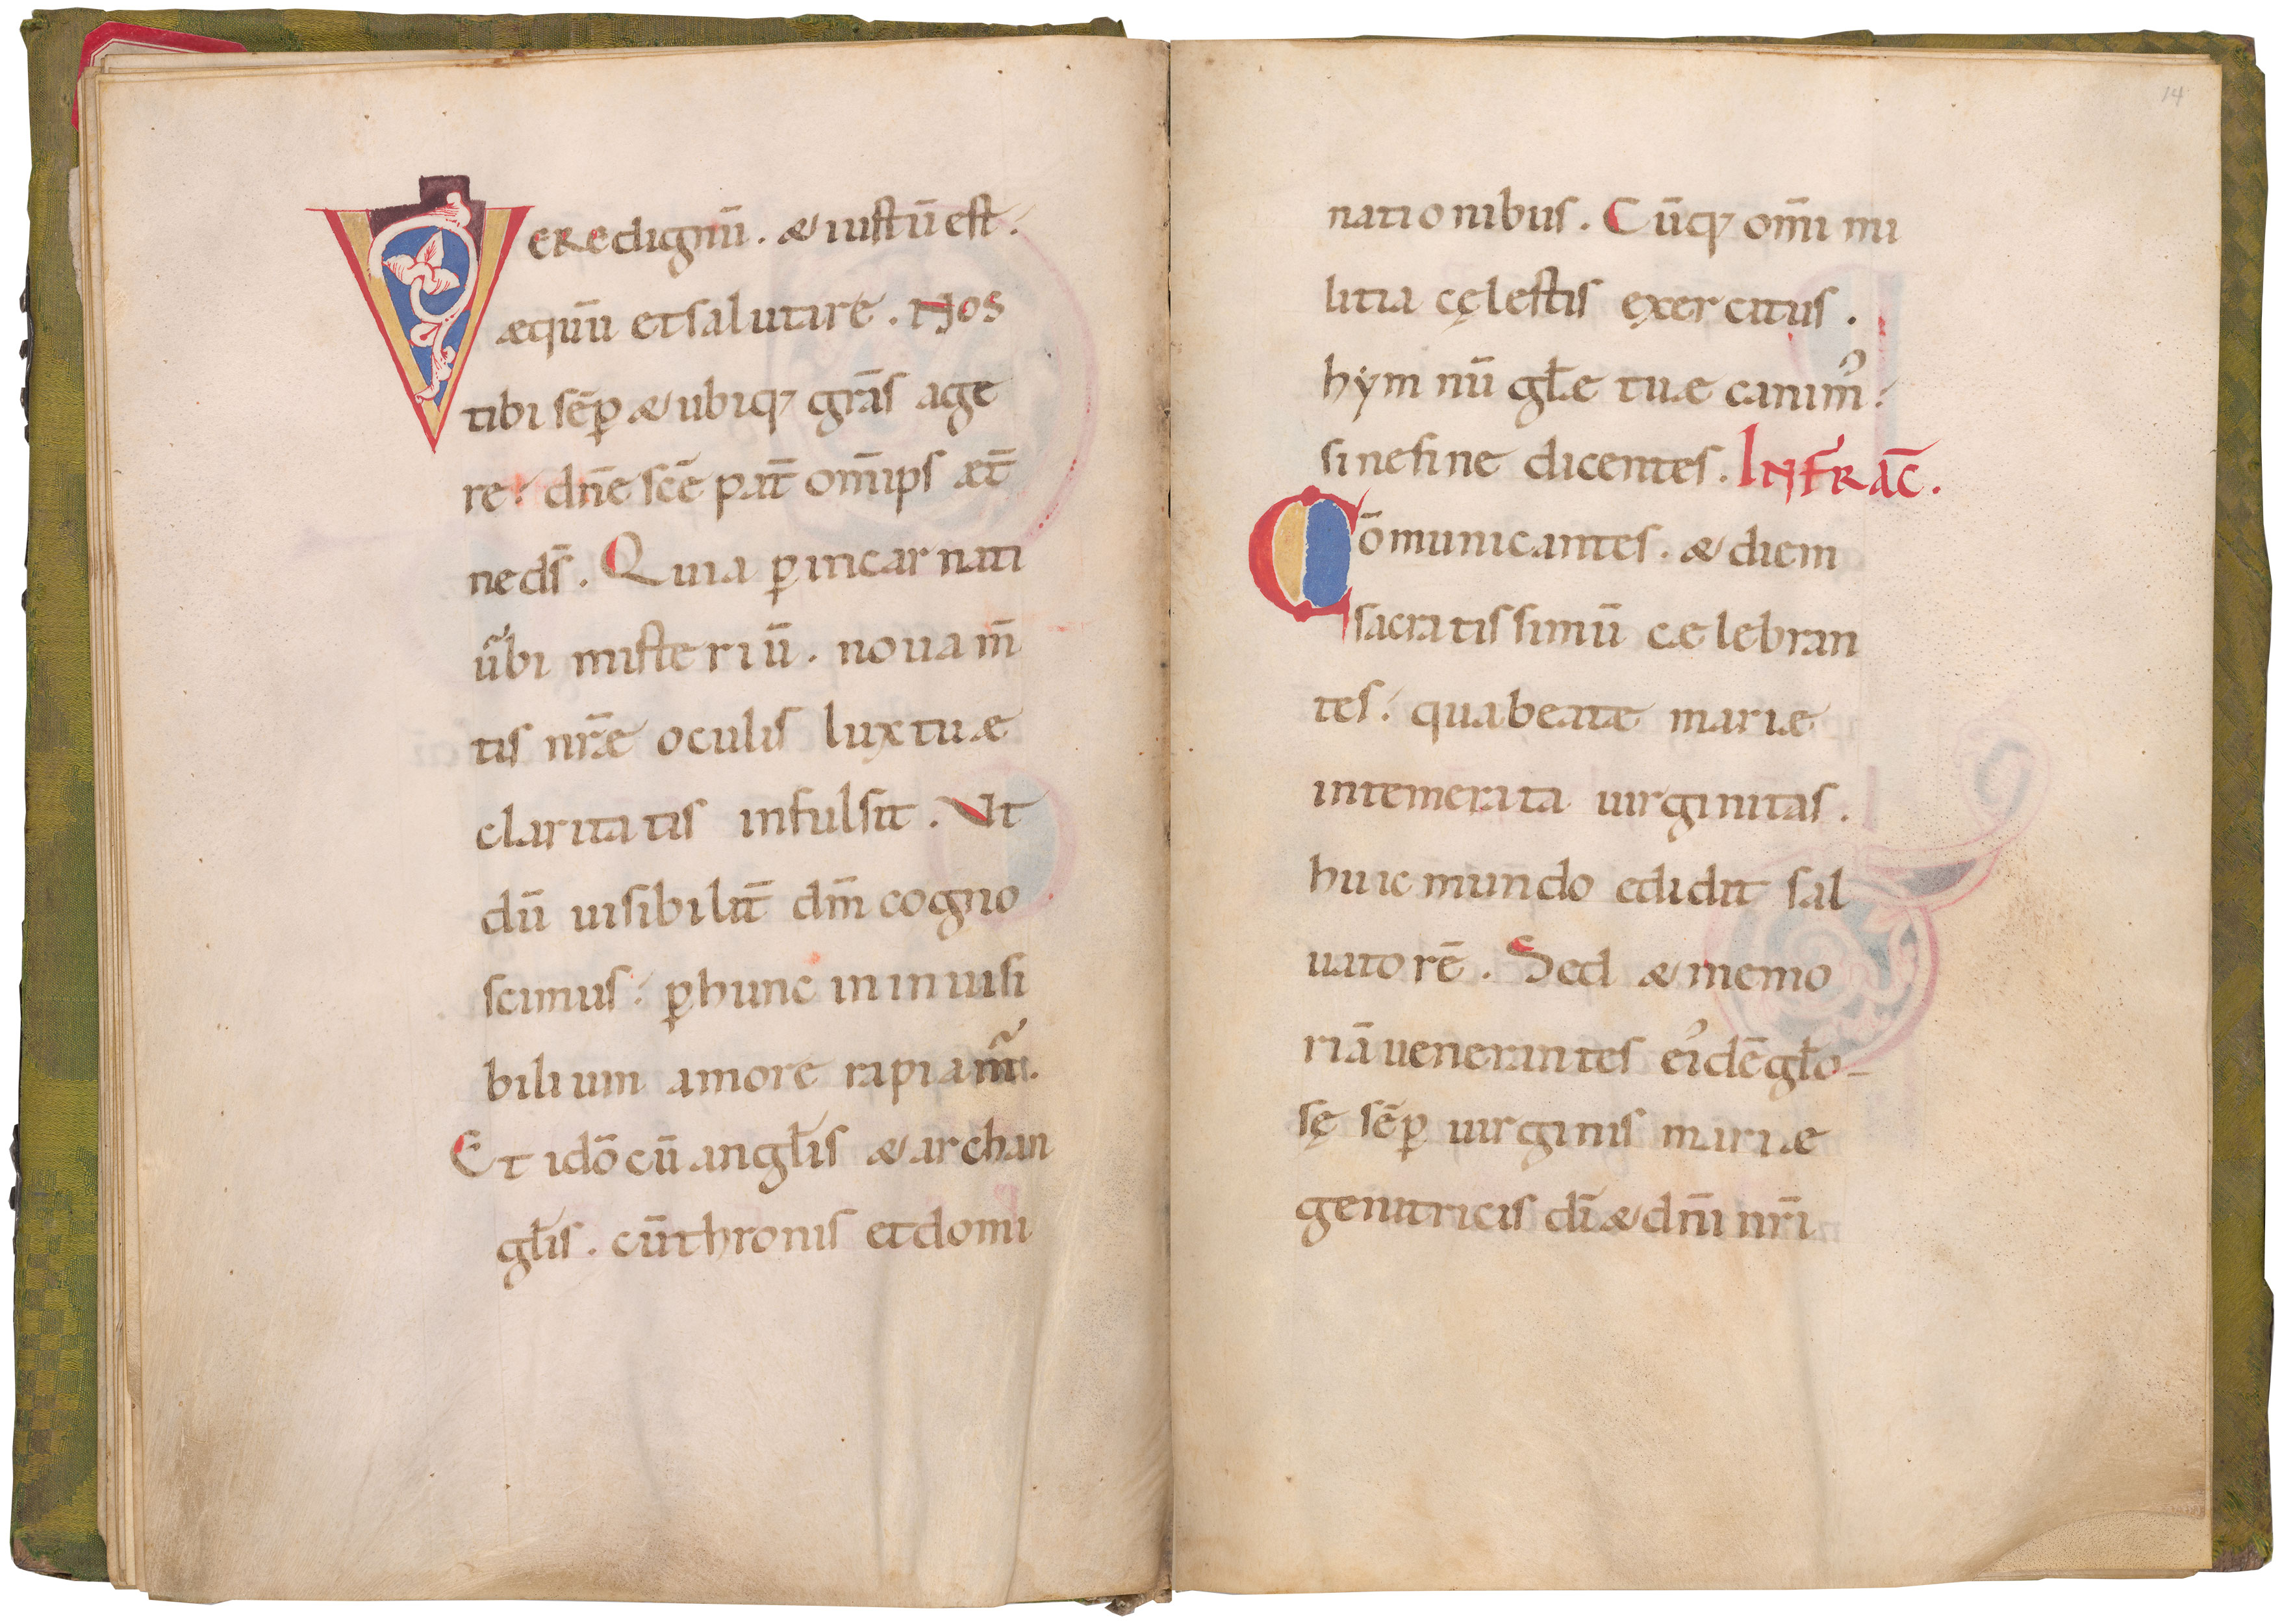 VEREdignū. & iustū est.
æquū et salutare. Nos
tibi sēp & ubiq; grās age
re. dn̄e scē pat̄ om̄ips æt̄
ne ds̄. Quia p incarnati
u᷒bi misteriū. noua m̄
tis nr̄æ oculis lux tuæ
claritatis infulsit. Ut
dū uisibilit̄ dm̄ cogno
scimus. p hunc in inuisi
bilium amore rapiam᷒.
Et idō cū angłis & archan
głis. cū thronis et domi
14
nationibus. Cūq; om̄i mi
litia cęlestis exercitus.
hẏmnū głæ tuæ canim᷒.
sine fine dicentes. INFRA AC̄.
Cōmunicantes. & diem
sacratissimū cælebran
tes. qua beatæ mariæ
intemerata uirginitas.
huic mundo edidit sal
uatorē. Sed & memo
riā uenerantes ei᷒dē gło-
sę sēp uirginis mariæ
genitricis dī & dn̄i nr̄i